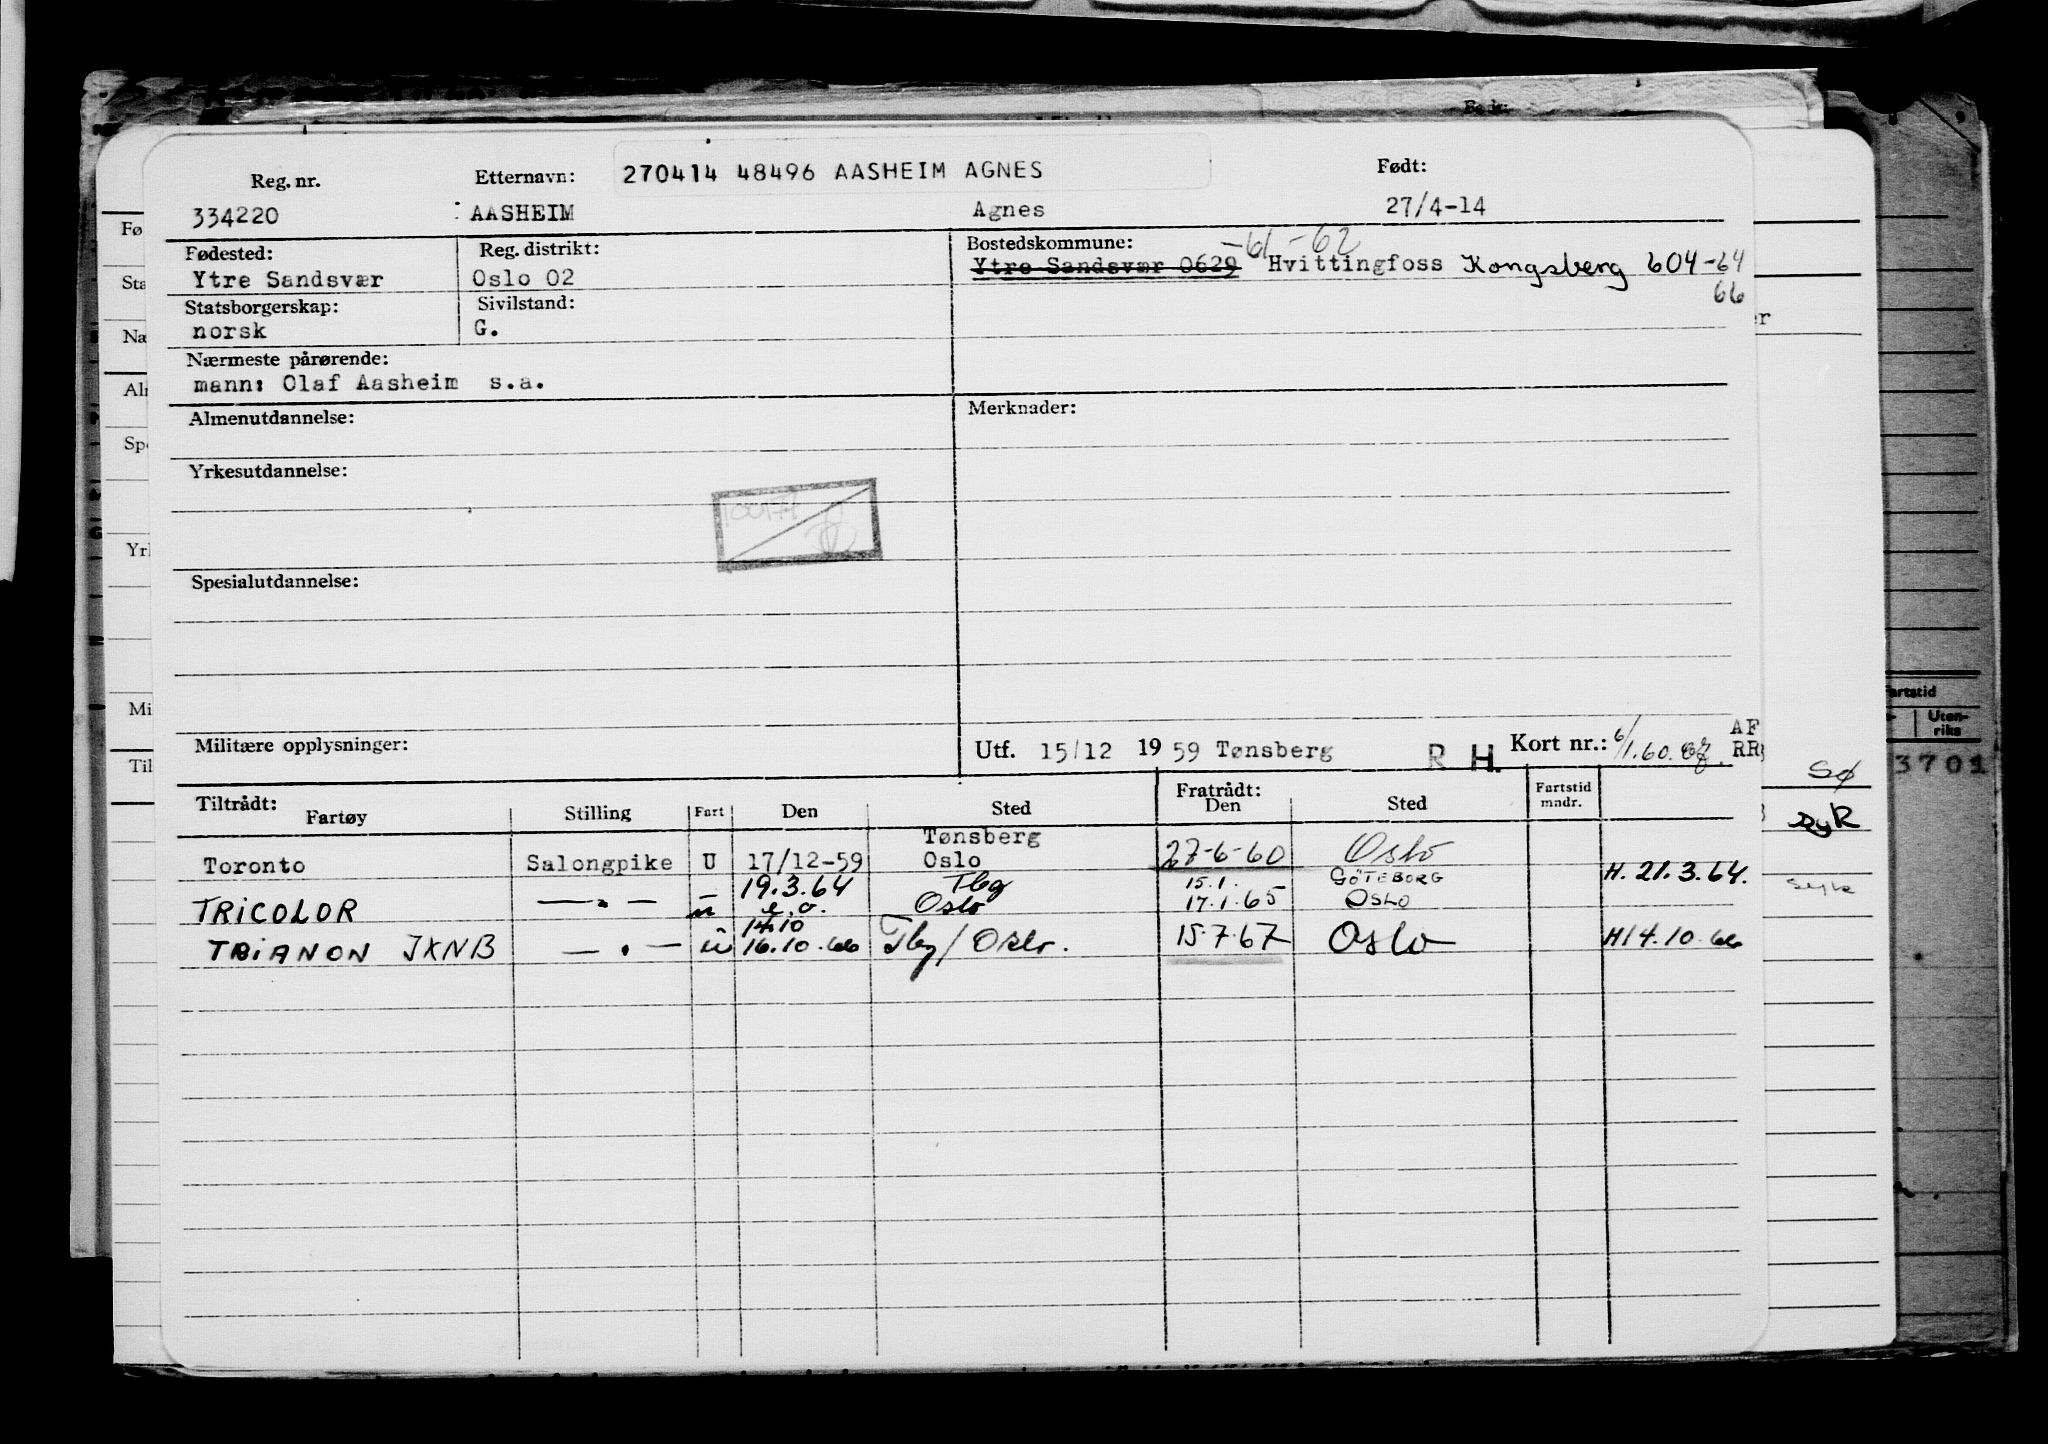 Reg. nr. Etternavn: 270414 48496 AASHEIM AGNES Født:
334220 AASHEIM Agnes 27/4-14
Fødested: Reg. distrikt: Bostedskommune: -61-62
Ytre Sandsvær Oslo 02 Ytre Sandsvær 0629 Hvittingfoss Kongsberg 604-64
66
Statsborgerskap: Sivilstand:
norsk G.
Nærmeste pårørende:
mann: Olaf Aasheim s.a.
Almenutdannelse: Merknader:
Yrkesutdannelse:
Spesialutdannelse:
Militære opplysninger: Utf. 15/12 1959 Tønsberg R H. Kort nr.: 6/1.60. AF
RR
Tiltrådt: Fratrådt:
Fartøy Stilling Fart Den Sted Den Sted Fartstid mndr.
Tønsberg
Toronto Salongpike U 17/12-59 Oslo 27-6-60 Oslo
19.3.64 Tbg 15.1. GÖTEBORG H. 21.3.64.
TRICOLOR — " — u e.o. Oslo 17.1.65 OSLO
14.10
TRIANON JXNB — " — u 16.10.66 Tbg/Oslo. 15.7.67 Oslo H14.10.66
Fø
Sta
Næ
Alr
Yrl
Mi
Til
Fartstid
Uten-
riks
3701
SØ